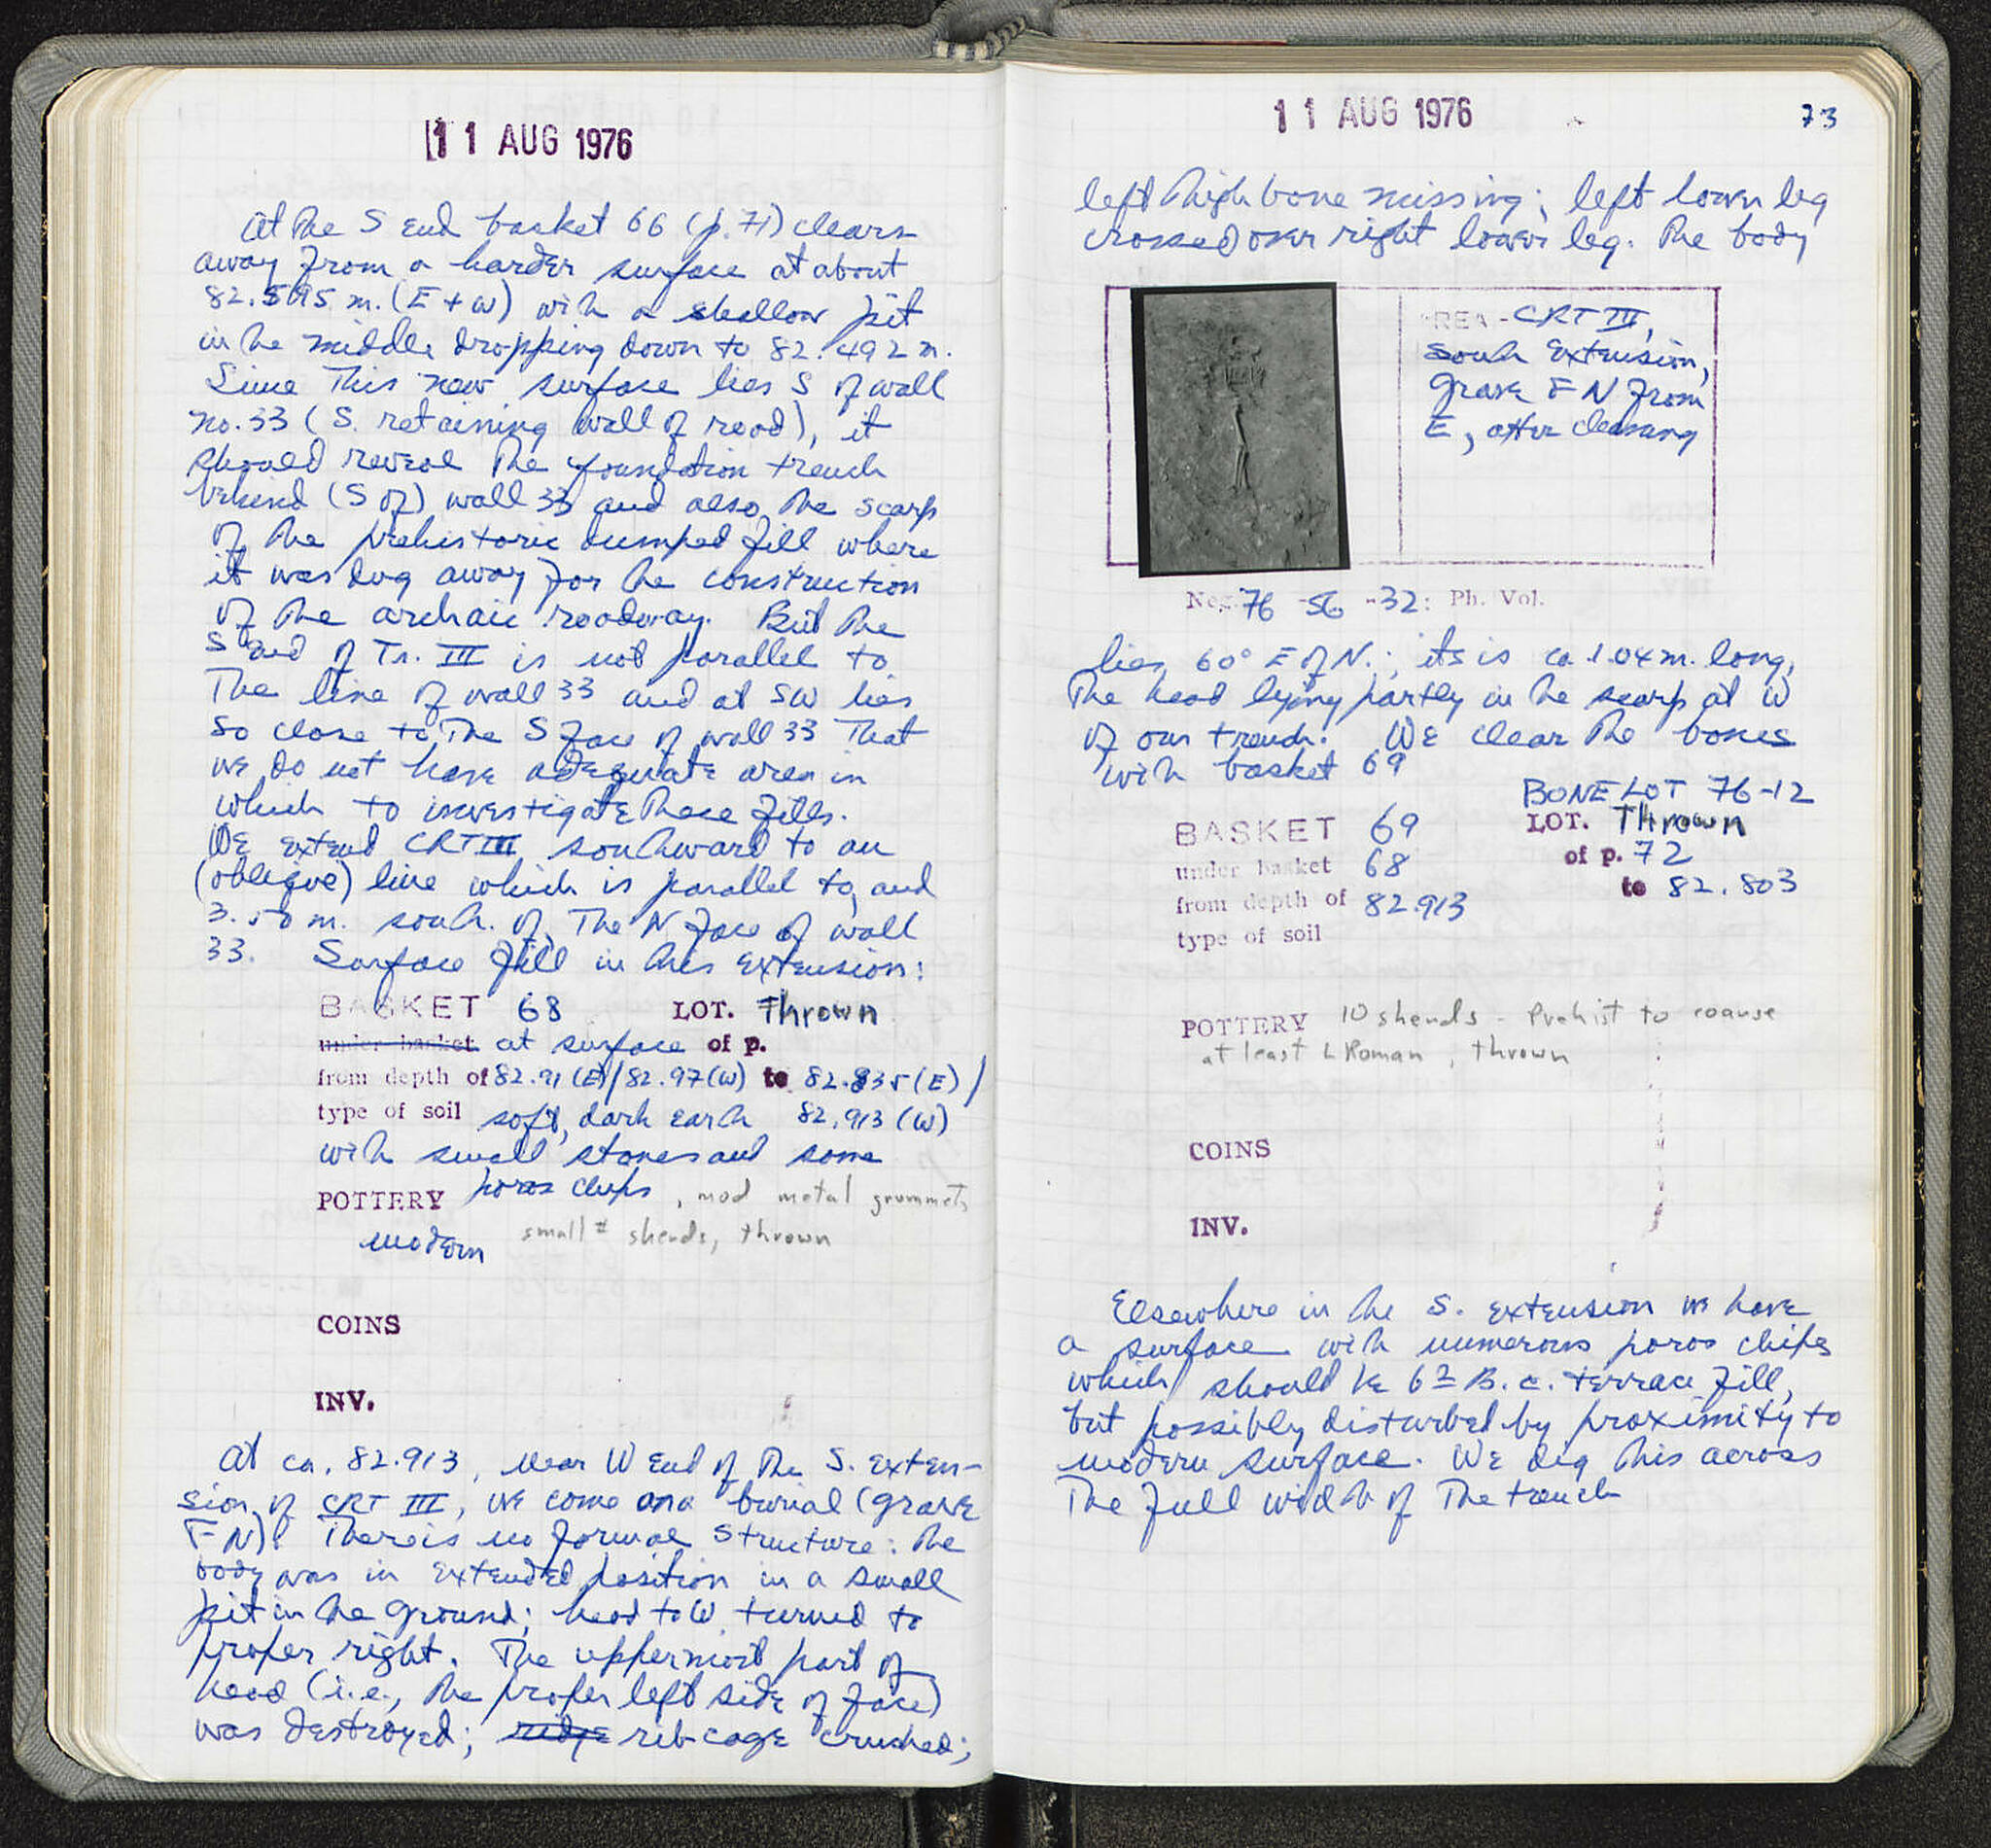 11 AUG 1976
At the S end basket 66 (p. 71) clears
away from a harder surface at about
82.595 m. (E + W) with a shallow pit
in the middle dropping down to 82.492 m.
Since this new surface lies S of wall
no. 33 (S. retaining wall of road), it
should reveal the foundation trench
behind (S of) wall 33 and also the scarp
of the prehistoric dumped fill where
it was dug away for the construction
of the archaic roadway. But the
S end of Tr. III is not parallel to
the line of wall 33 and at SW lies
so close to the S face of wall 33 that
we do not have adequate area in
which to investigate these fills.
We extend CRT III southward to an
(oblique) line which is parallel to, and
3.50 m. south of, the N face of wall
33. Surface fill in this extension:
BASKET 68 LOT. Thrown
under basket at surface of p.
from depth of 82.91 (E)/82.97 (W) to 82.835 (E)/
type of soil soft, dark earth 82.913 (W)
with small stones and some
poros chips, mod metal grummets
POTTERY
modern small # sherds, thrown
COINS
INV.
At ca. 82.913, near W end of the S. exten-
sion of CRT III, we come on a burial (grave
FN). There is no formal structure: the
body was in extended position in a small
pit in the ground; head to W, turned to
proper right. The uppermost part of
head (i.e., the proper left side of face)
was destroyed; rib cage crushed;
11 AUG 1976 73
left thigh bone missing; left lower leg
crossed over right lower leg. The body
AREA - CRT III,
South Extension,
grave FN from
E, after cleaning
Neg. 76 -56 -32: Ph. Vol.
lies 60° E of N.; its is ca 1.04 m. long,
the head lying partly in the scarp at W
of our trench. We clear the bones
with basket 69
BONE LOT 76-12
BASKET 69 LOT. Thrown
under basket 68 of p. 72
from depth of 82.913 to 82.803
type of soil
POTTERY 10 sherds - Prehist to coarse
at least L Roman, thrown
COINS
INV.
Elsewhere in the S. extension we have
a surface with numerous poros chips
which should be 6th B.C. terrace fill,
but possibly disturbed by proximity to
modern surface. We dig this across
the full width of the trench